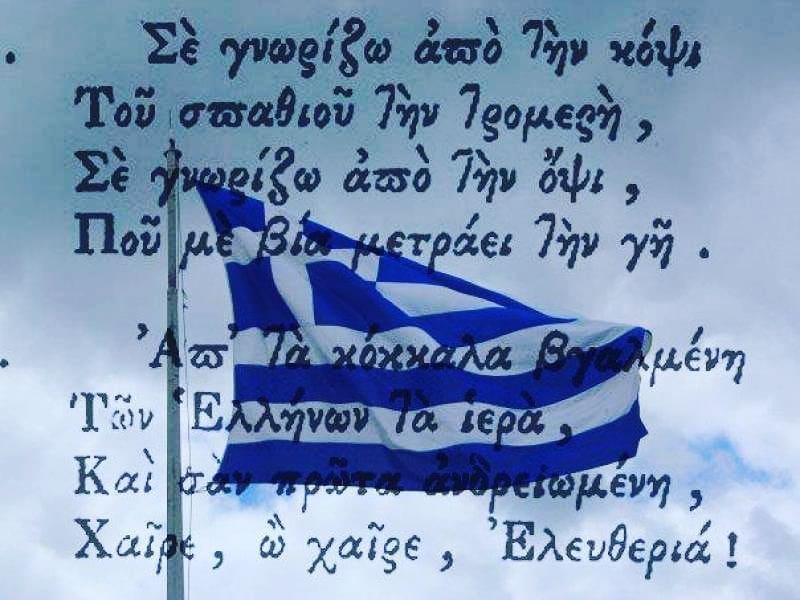 Σὲ γνωρίζω ἀπὸ τὴν κόψι
Τοῦ σπαθιοῦ τὴν τρομερὴ,
Σὲ γνωρίζω ἀπὸ τὴν ὄψι,
Ποῦ μὲ βία μετράει τὴν γῆ.
Ἀπ' τὰ κόκκαλα βγαλμένη
Τῶν Ἑλλήνων τὰ ἱερὰ,
Καὶ σὰν πρῶτα ἀνδρειωμένη,
Χαῖρε, ὢ χαῖρε, Ἐλευθεριά!